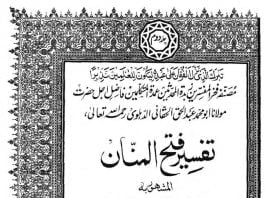 جلد دوم
تبارك الذي نزل الفرقان على عبده ليكون للعالمين نذيرا
مصنفہ فخر المفسرین زبدۃ المحدثین عمدۃ المتکلمین فاضل اجل حضرت
مولانا ابو محمد عبد الحق الحقانی الدہلوی رحمہ اللہ تعالیٰ
تفسیر فتح المنان
المشہور بہ